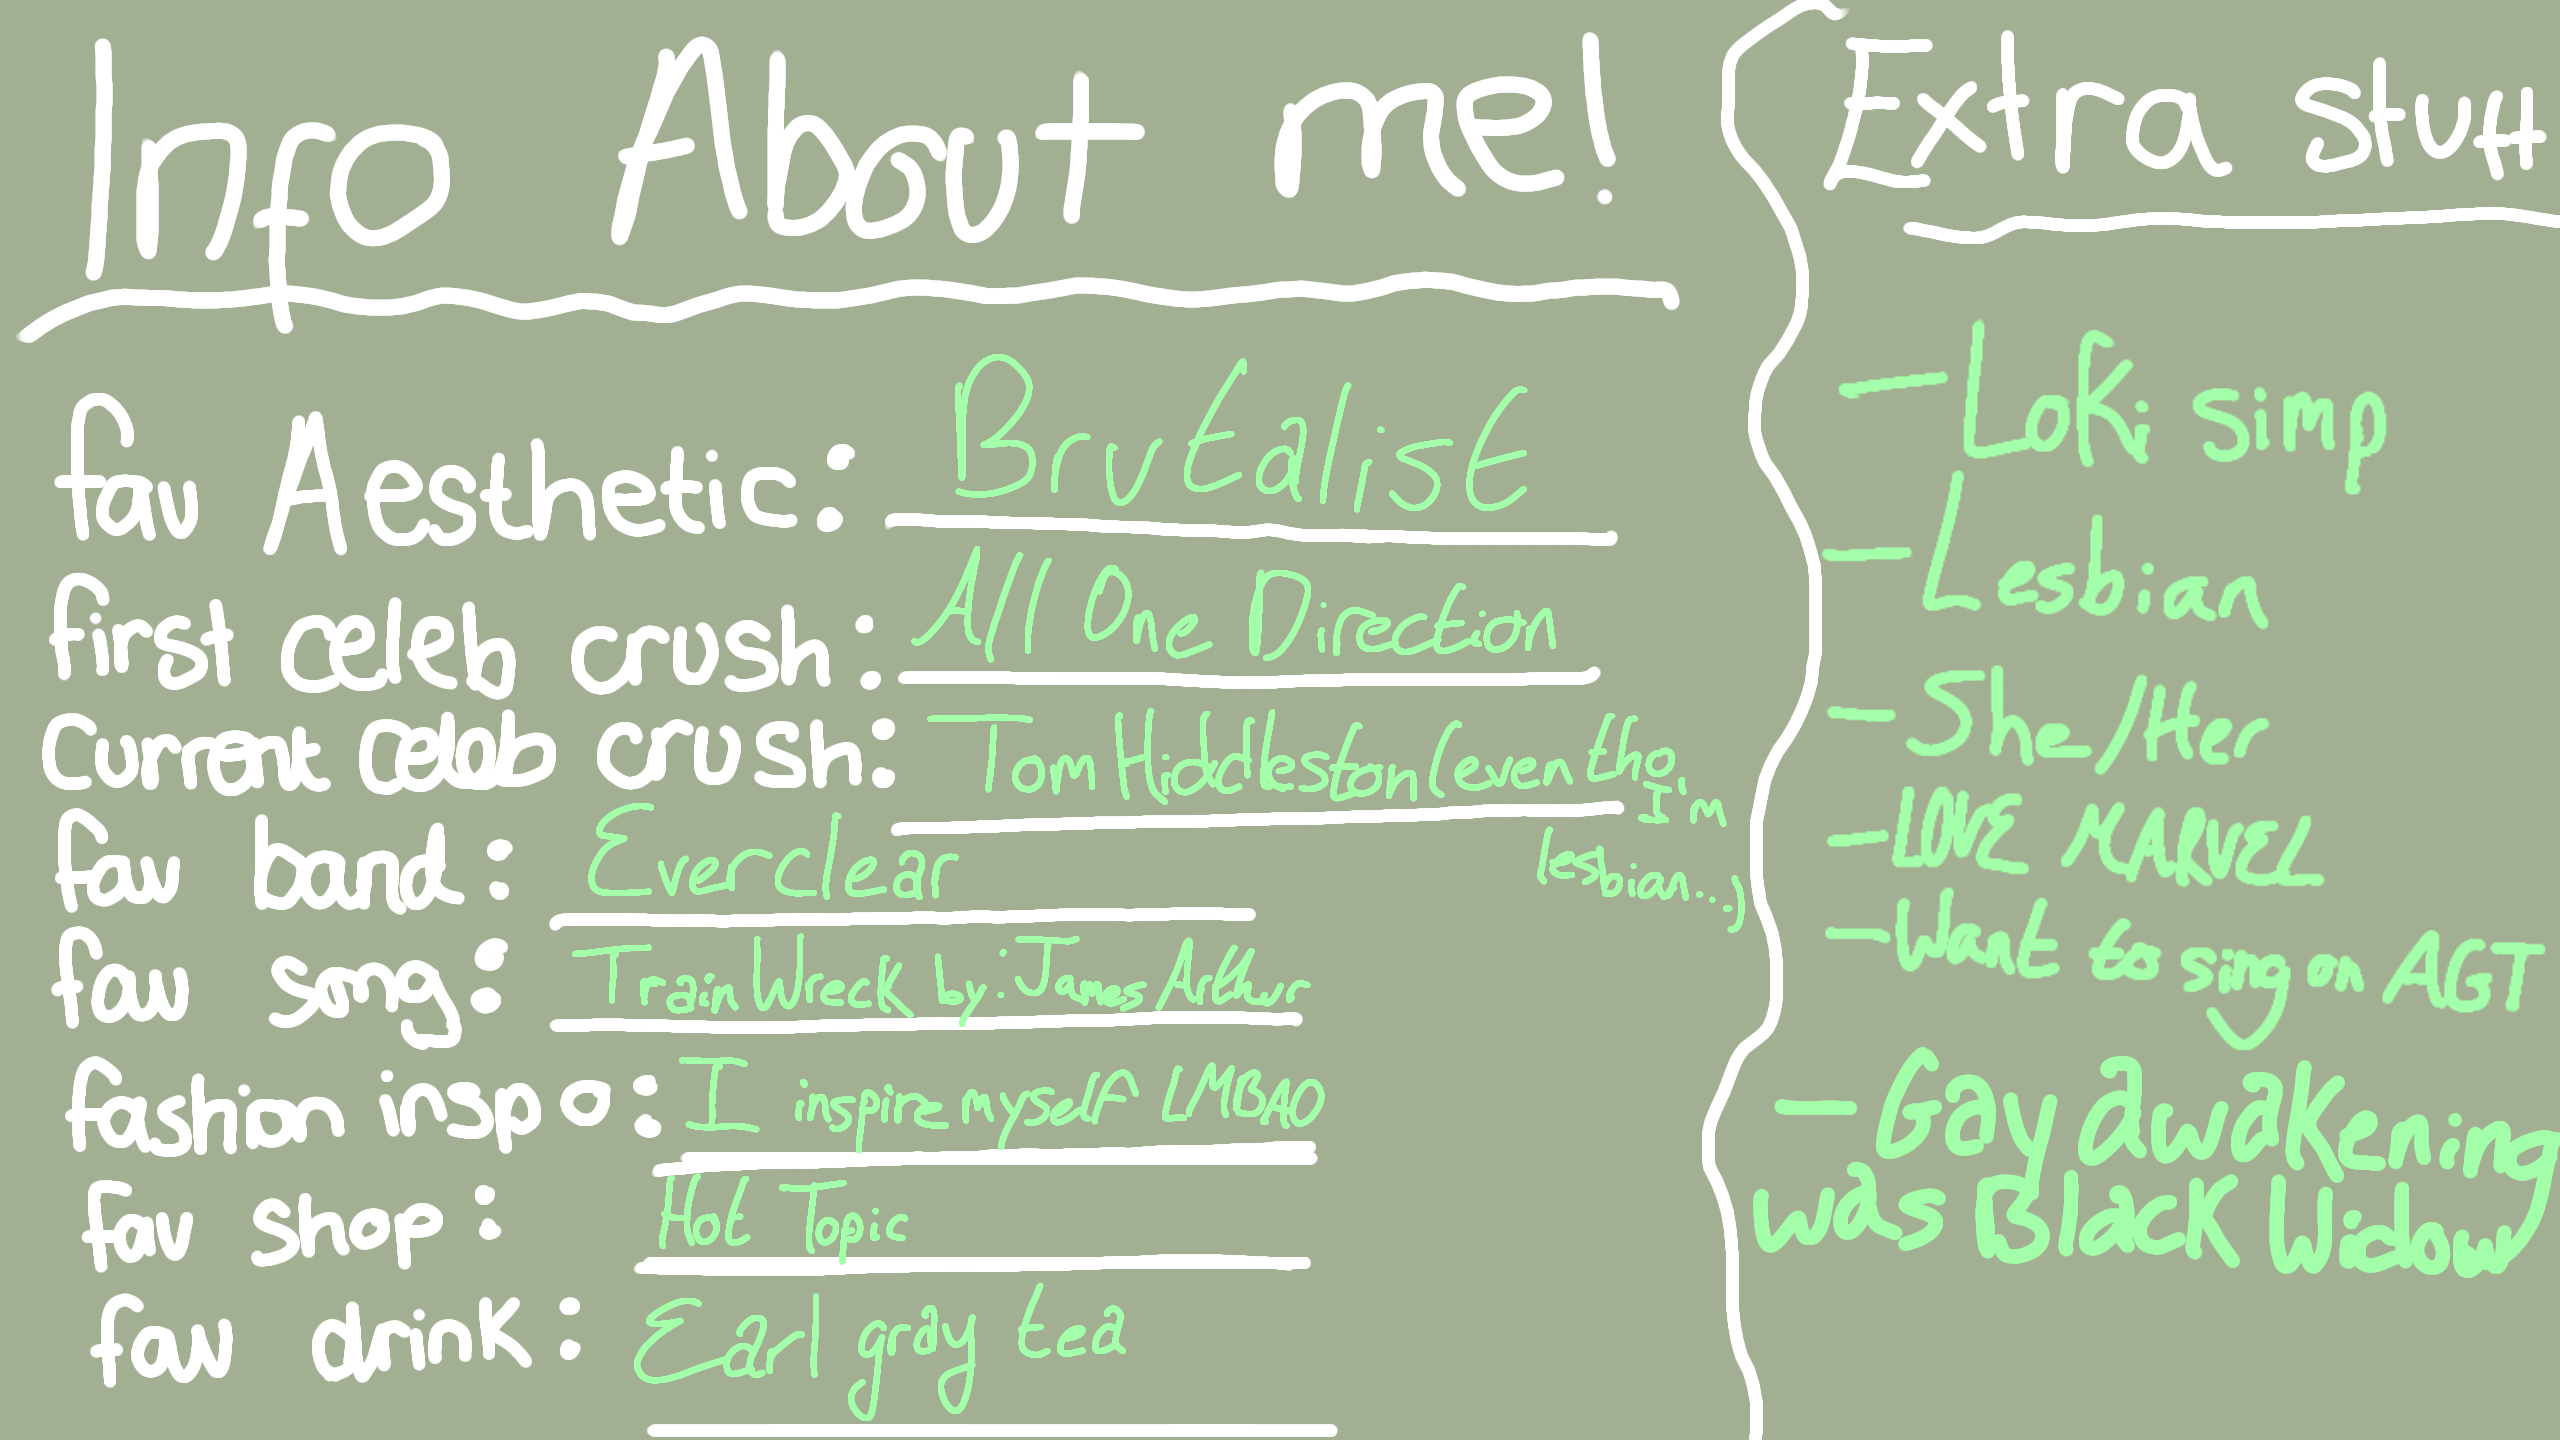 Info About me!
fav Aesthetic: Brutalist
first celeb crush: All One Direction
Current celeb crush: Tom Hiddleston (even tho
I'm
lesbian...)
fav band: Everclear
fav song: Train Wreck by: James Arthur
fashion inspo: I inspire myself LMBAO
fav shop: Hot Topic
fav drink: Earl gray tea
Extra stuff
- Loki simp
- Lesbian
- She/Her
- LOVE MARVEL
- Want to sing on AGT
- Gay awakening
was Black Widow